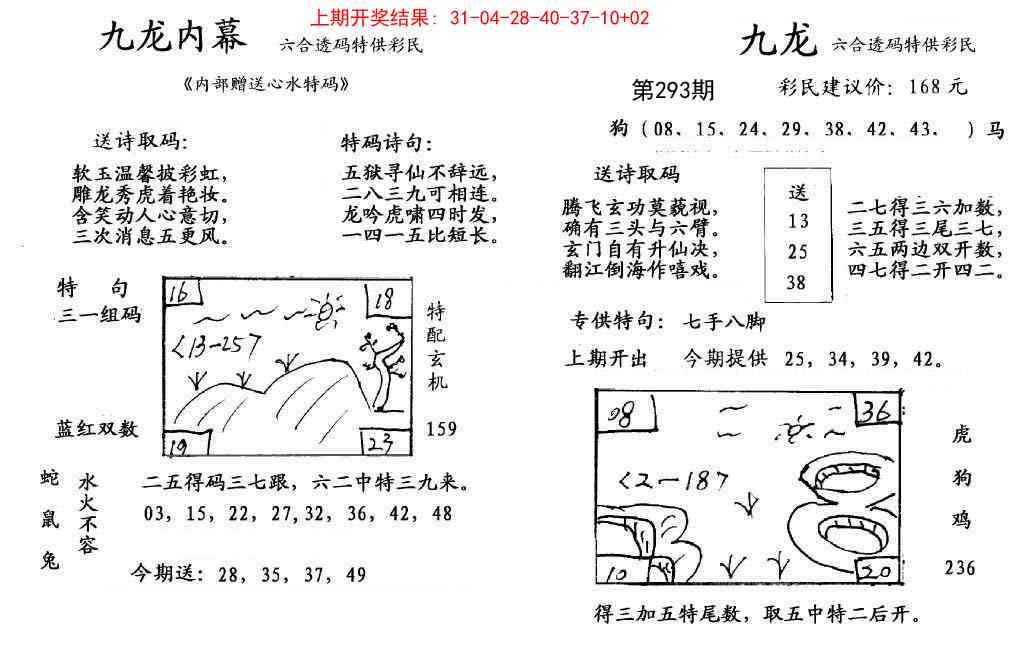 上期开奖结果: 31-04-28-40-37-10+02
九龙内幕 六合透码特供彩民
《内部赠送心水特码》
送诗取码:
软玉温馨披彩虹,
雕龙秀虎着艳妆。
含笑动人心意切,
三次消息五更风。
特码诗句:
五狱寻仙不辞远,
二八三九可相连。
龙吟虎啸四时发,
一四一五比短长。
特 句
三一组码
蓝红双数
16
18
<13-257
19
23
特配玄机
159
蛇鼠兔
水火不容
二五得码三七跟, 六二中特三九来。
03, 15, 22, 27, 32, 36, 42, 48
今期送: 28, 35, 37, 49
九龙 六合透码特供彩民
第293期 彩民建议价: 168 元
狗 (08、15、24、29、38、42、43、 ) 马
送诗取码
腾飞玄功莫藐视,
确有三头与六臂。
玄门自有升仙决,
翻江倒海作嘻戏。
送
13
25
38
二七得三六加数,
三五得三尾三七,
六五两边双开数,
四七得二开四二。
专供特句: 七手八脚
上期开出 今期提供 25, 34, 39, 42。
08
36
<2-187
10
20
虎
狗
鸡
236
得三加五特尾数, 取五中特二后开。